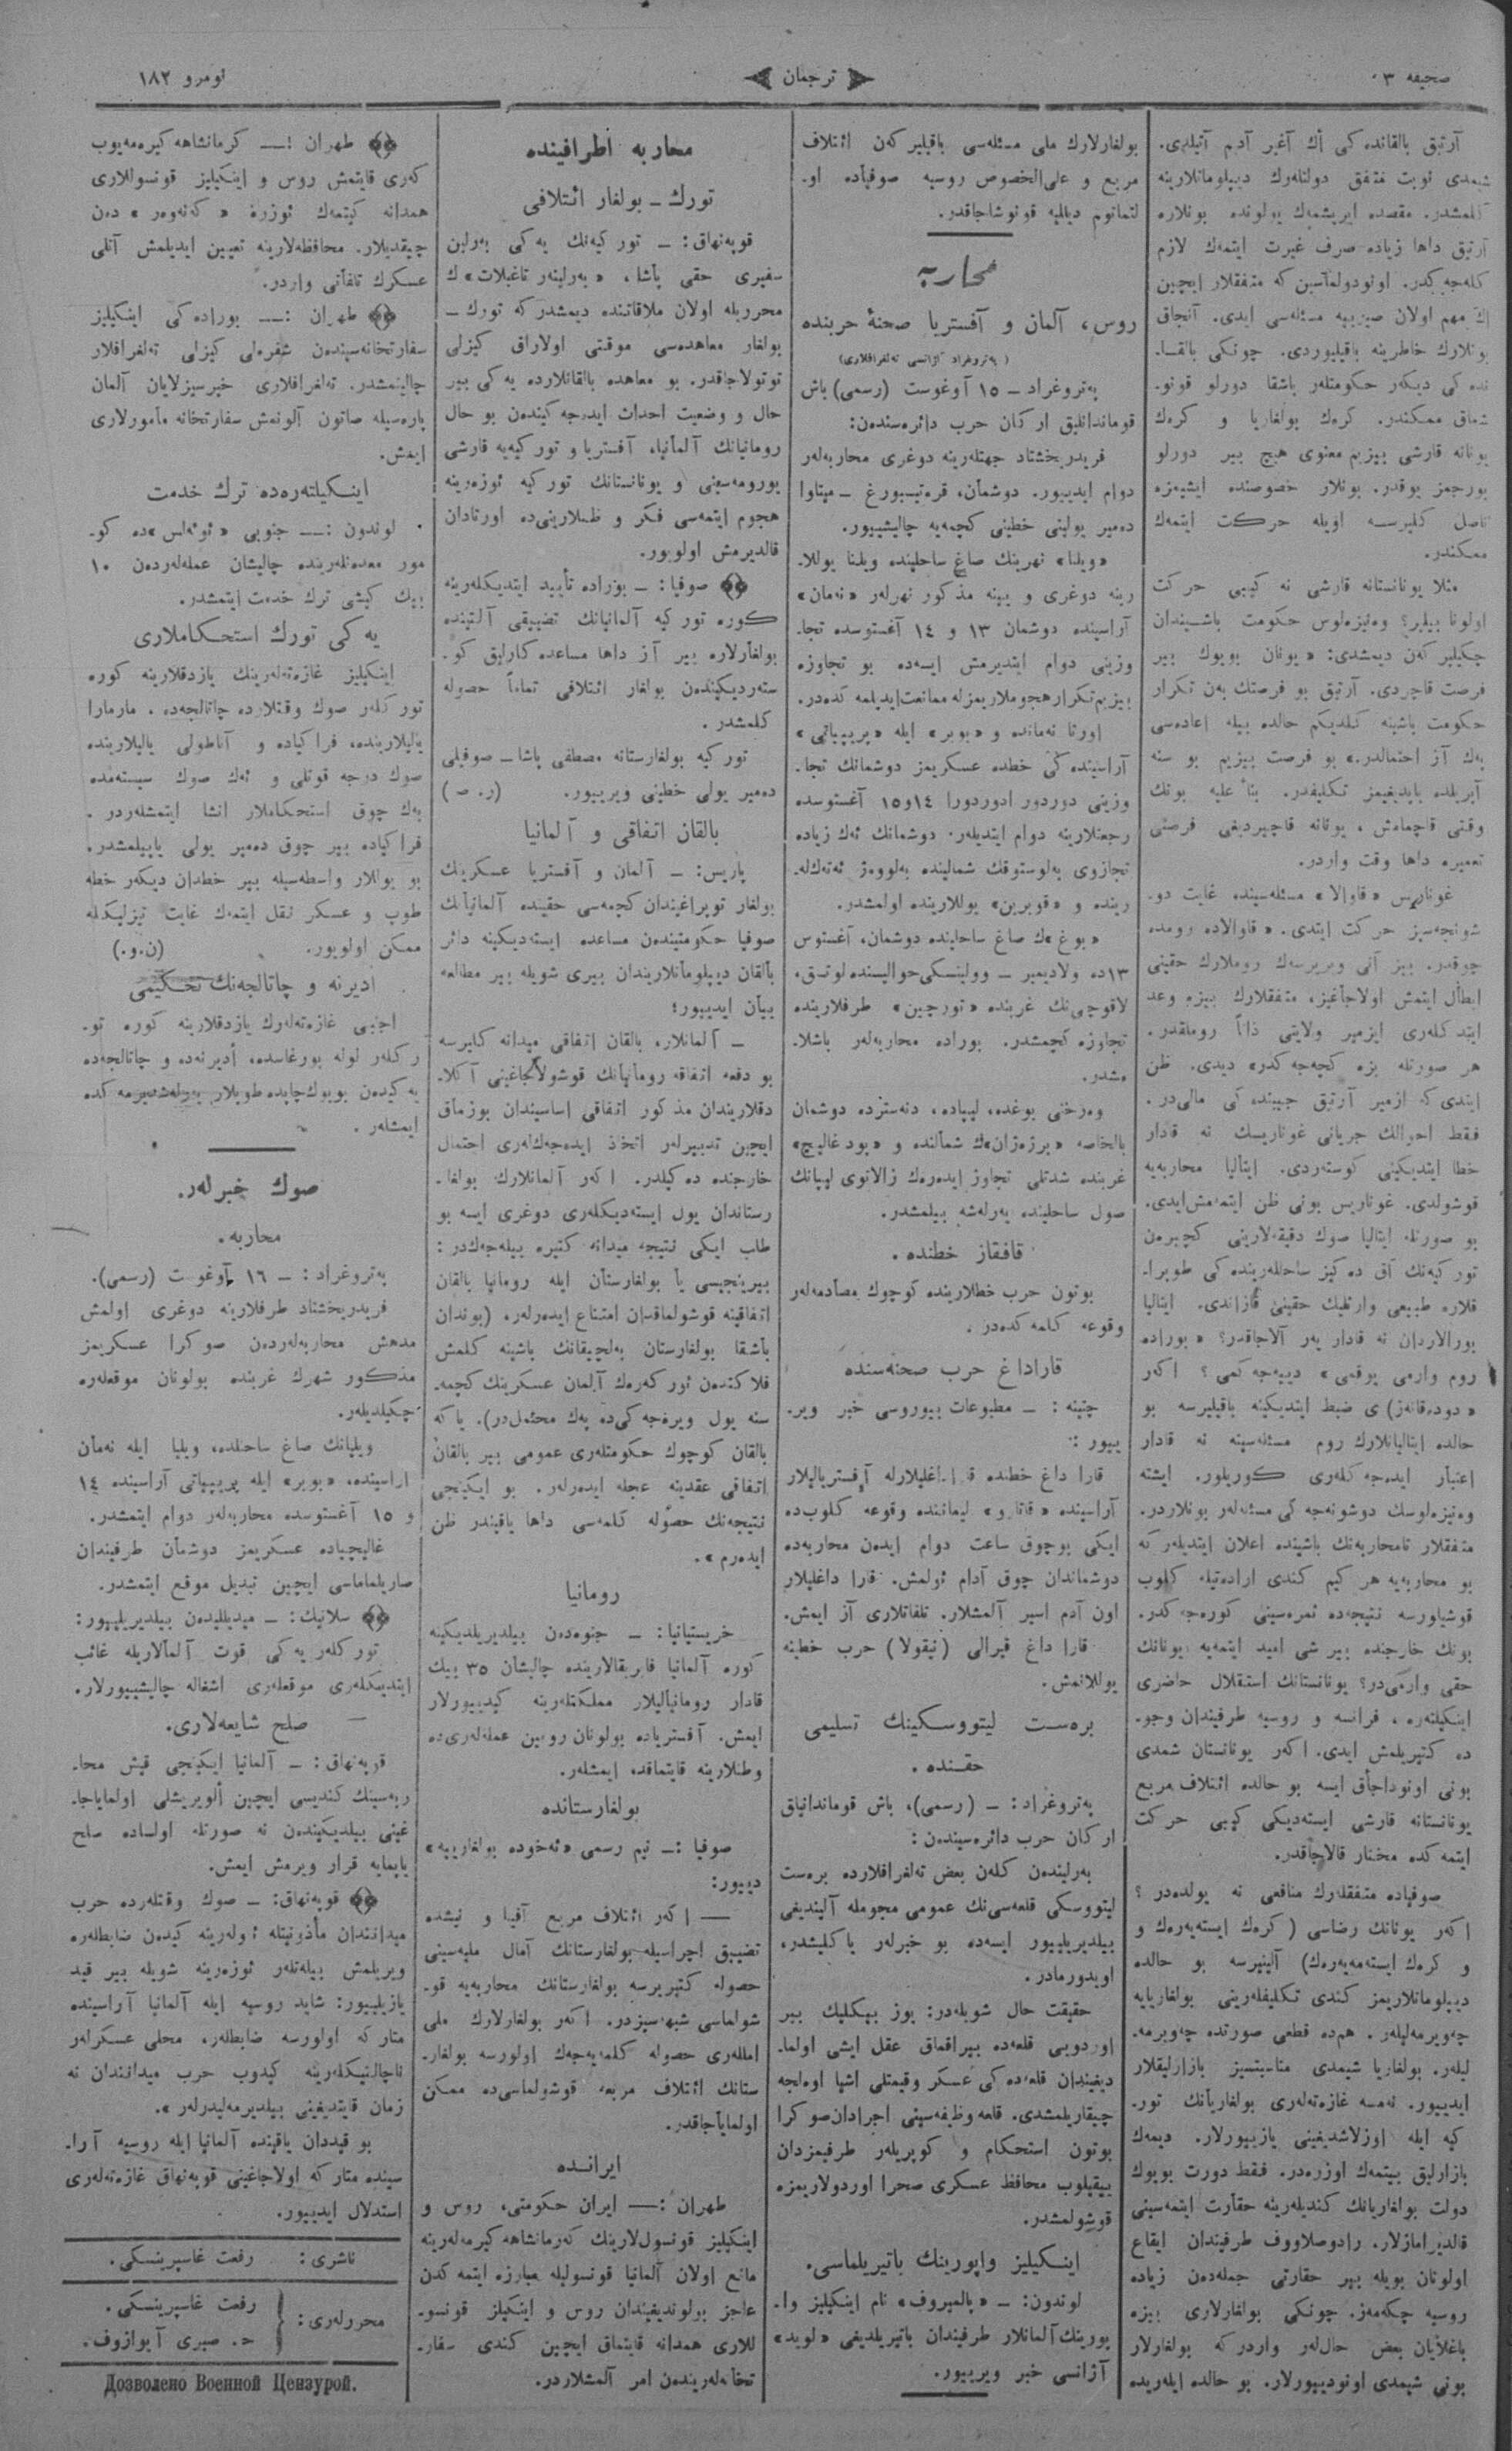 صحیفه ٣
ترجمان
نومرو ١٨٢
آرتیق بالقانده‌كی اڭ آغیر آدم آتیلدی.
شیمدی نوبت متفق دولتلەرڭ دیپلوماتلارینه
گلمشدر. مقصده ایریشمەك یولونده بونلاره
آرتیق داها زیاده صرف غیرت ایتمەك لازم
گلەجەكدر. اونودولماسین كه متفقلار ایچین
اڭ مهم اولان صیربیه مسئلەسی ایدی. آنجاق
بونلارڭ خاطرینه باقیلیوردی. چونكی بالقا-
نده‌كی دیگەر حكومتلەر باشقا دورلو قونو-
شماق ممكندر. كرەك بولغاریا و كرەك
یونانه قارشی بیزیم معنوی هیچ بیر دورلو
بورجمز یوقدر. بونلار خصوصنده ایشیمزه
ناصل گلیرسه اویله حركت ایتمەك
ممكندر.
مثلا یونانستانه قارشی نه كیبی حركت
اولونا بیلیر؟ وەنیزەلوس حكومت باشیندان
چكیلیركەن دیمشدی: «یونان بویوك بیر
فرصت قاچردی. آرتیق بو فرصتڭ بەن تكرار
حكومت باشینه گلدیگم حالده بیله اعادەسی
پەك آز احتمالدر.» بو فرصت بیزیم بو سنه
آپریلده یاپدیغیمز تكلیفدر. بناءً علیه بونڭ
وقتی قاچمامش، یونانه قاچیردیغی فرصتی
تعمیره داها وقت واردر.
غوناریس «قاوالا» مسئلەسینده غایت دو-
شونجەسیز حركت ایتدی. «قاوالاده روم‌ده
چوقدر. بیز آنی ویریرسەك روملارڭ حقینی
ابطال ایتمش اولاجاغیز، متفقلارڭ بیزه وعد
ایتدكلەری ایزمیر ولایتی ذاتاً روملقدر.
هر صورتله بزه گچەجەكدر» دیدی. ظن
ایتدی كه ازمیر آرتیق جیبنده‌كی مالی‌در.
فقط احوالڭ جریانی غوناریسڭ نه قادار
خطا ایتدیكینی كوستەردی. ایتالیا محاربەیه
قوشولدی. غوناریس بونی ظن ایتمەمش‌ایدی.
بو صورتله ایتالیا صوڭ دقیقەلارینی كچیرەن
توركیه‌نڭ آق دەڭیز ساحللەرینده‌كی طوپرا-
قلاره طبیعی وارثلیك حقینی قازاندی. ایتالیا
بورالاردان نه قادار یەر آلاجاقدر؟ «بوراده
روم وارمی یوقمی» دییەجەكمی؟ اگەر
«دودەقانەز»ی ضبط ایتدیكینه باقیلیرسه بو
حالده ایتالیانلارڭ روم مسئلەسینه نه قادار
اعتبار ایدەجەكلەری كوریلور. ایشته
وەنیزەلوسڭ دوشونەجەكی مسئلەلەر بونلاردر.
متفقلار تامحاربەنڭ باشینده اعلان ایتدیلەر كه
بو محاربەیه هر كیم كندی ارادەتیله گلوب
قوشیلورسه نتیجه‌ده ثمرەسینی كورەجەكدر.
بونڭ خارجنده بیر شی امید ایتمەیه یونانڭ
حقی وارمی‌در؟ یونانستانڭ استقلال حاضری
اینگیلتەره، فرانسه و روسیه طرفیندان وجو-
ده كتیریلمش ایدی. اگەر یونانستان شمدی
بونی اونوداجاق ایسه بو حالده ائتلاف مربع
یونانستانه قارشی ایستەدیكی كیبی حركت
ایتمەكده مختار قالاجاقدر.
صوفیاده متفقلەرڭ منافعی نه یولده‌در؟
اگەر یونانڭ رضاسی (كرەك ایستەیەرەك و
و كرەك ایستەمەیەرەك) آلینیرسه بو حالده
دیپلوماتلاریمز كندی تكلیفلەرینی بولغاریایه
چەویرمەلیلەر. هم‌ده قطعی صورتده چەویرمە-
لیلەر. بولغاریا شیمدی مناسبتسیز بازارلیقلار
ایدییور. نەمسه غازەتەلەری بولغاریانڭ تور-
كیه ایله اوزلاشدیغینی یازیيورلار. دیمەك
بازارلیق بیتمەك اوزرەدر. فقط دورت بویوك
دولت بولغاریانڭ كندیلەرینه حقارت ایتمەسینی
قالدیرامازلار. رادوصلاووف طرفیندان ایقاع
اولونان بویله بیر حقارتی جمله‌دەن زیاده
روسیه چكەمەز. چونكی بولغارلاری بیزه
باغلایان بعض حاللەر واردر كه بولغارلار
بونی شیمدی اونودیيورلار. بو حالده ایلەریده
بولغارلارڭ ملی مسئلەسی باقیلیركەن ائتلاف
مربع و علی‌الخصوص روسیه صوفیاده او-
لتماتوم دیلیله قونوشاجاقدر.
محاربه
روس، آلمان و آفستریا صحنۀ حربنده
(پەتروغراد آژانسی تەلغرافلاری)
پەتروغراد – ١٥ آوغوست (رسمی) باش
قومانداناق اركان حرب دائرەسندەن:
فریدریخشتاد جهتلەرینه دوغری محاربەلەر
دوام ایدییور. دوشمان، قرەتیسبورغ – میتاوا
دەمیر یولینی خطینی كچمەیه چالیشییور.
«ویلنا» نهرینڭ صاغ ساحلینده ویلنا یوللا-
رینه دوغری و یینه مذكور نهرلەر «نەمان»
آراسینده دوشمان ١٣ و ١٤ آغستوسده تجا-
وزینی دوام ایتدیرمش ایسه‌ده بو تجاوزه
بیزیم تكرار هجوملاریمزله ممانعت ایدیلمەكده‌در.
اورتا نەمانده و «بوبر» ایله «پریپیاتی»
آراسینده‌كی خطده عسكریمز دوشمانڭ تجا-
وزینی دوردور ادوردورا ١٤و١٥ آغستوسده
رجعتلارینه دوام ایتدیلەر. دوشمانڭ ئەڭ زیاده
تجاوزی بەلوستوقڭ شمالینده بەلووەژ ئەتەكلە-
رینده و «قوبرین» یوللارینده اولمشدر.
«بوغ»ڭ صاغ ساحلینده دوشمان، آغستوس
١٣ده ولادیمیر – وولینسكی حوالیسنده لوتسق،
لاقوچی‌نڭ غربنده «تورچین» طرفلارینده
تجاوزه گچمشدر. بوراده محاربەلەر باشلا-
مشدر.
وەرخنی بوغده، لیپیاده، دنەسترده دوشمان
بالخاصه «برزەزان»ڭ شمالنده و «پودغالیچ»
غربنده شدتلی تجاوز ایدەرەك زالاتوی لیپیانڭ
صول ساحلینده یەرلەشه بیلمشدر.
قافقاز خطنده.
بوتون حرب خطلارینده كوچوك مصادمەلەر
وقوعه گلمەكده‌در.
قاراداغ حرب صحنەسنده
چتینه: – مطبوعات بیوروسی خبر ویر-
ییور:
قارا داغ خطنده قراداغلیلارله آفستریالیلار
آراسینده «قاتارو» لیماننده وقوعه گلوب‌ده
ایكی بوچوق ساعت دوام ایدەن محاربه‌ده
دوشماندان چوق آدام ئولمش. قارا داغلیلار
اون آدم اسیر آلمشلار. تلفاتلاری آز ایمش.
قارا داغ قیرالی (نیقولا) حرب خطینه
یوللانمش.
برەست لیتووسكینڭ تسلیمی
حقنده.
پەتروغراد: – (رسمی)، باش قومانداناق
اركان حرب دائرەسیندەن:
بەرلیندەن گلەن بعض تەلغرافلارده برەست
لیتووسكی قلعەسی‌نڭ عمومی هجومله آلیندیغی
بیلدیریلیيور ایسه‌ده بو خبرلەر یاڭلیشدر،
اویدورمادر.
حقیقت حال شویله‌در: یوز بیڭلیك بیر
اوردویی قلعه‌ده بیراقماق عقل ایشی اولما-
دیغیندان قلعه‌ده‌كی عسكر وقیمتلی اشیا اوەلجه
چیقاریلمشدی. قلعه وظیفەسینی اجرادان صوڭرا
بوتون استحكام و كوپریلەر طرفیمزدان
ییقیلوب محافظ عسكری صحرا اوردولاریمزه
قوشولمشدر.
اینگیلیز واپورینڭ باتیریلماسی.
لوندون: – «پالمیروف» نام اینگیلیز وا-
پورینڭ آلمانلار طرفیندان باتیریلدیغی «لوید»
آژانسی خبر ویرییور.
محاربه اطرافینده
تورك – بولغار ائتلافی
قوپەنهاق: – توركیەنڭ یەڭی بەرلین
سفیری حقی پاشا، «بەرلینەر تاغبلات»ڭ
محرریله اولان ملاقاتنده دیمشدر كه تورك –
بولغار معاهدەسی موقتی اولاراق كیزلی
توتولاجاقدر. بو معاهده بالقانلارده یەڭی بیر
حال و وضعیت احداث ایدەجەكیندەن بو حال
رومانیانڭ آلمانیا، آفستریا و توركیەیه قارشی
یورومەسینی و یونانستانڭ توركیه ئوزەرینه
هجوم ایتمەسی فكر و ظنلارینی‌ده اورتادان
قالدیرمش اولویور.
صوفیا: – بوراده تأیید ایتدیكلەرینه
كوره توركیه آلمانیانڭ تضییقی آلتینده
بولغارلاره بیر آز داها مساعده‌كارلیق كو-
ستەردیكیندەن بولغار ائتلافی تماماً حصوله
گلمشدر.
توركیه بولغارستانه مصطفی پاشا – صوفیلی
دەمیر یولی خطینی ویرییور. (ر. ص)
بالقان اتفاقی و آلمانیا
پاریس: – آلمان و آفستریا عسكرینڭ
بولغار توپراغیندان كچمەسی حقینده آلمانیانڭ
صوفیا حكومتیندەن مساعده ایستەدیكینه دائر
بالقان دیپلوماتلاریندان بیری شویله بیر مطالعه
بیان ایدییور:
– آلمانلار، بالقان اتفاقی میدانه گلیرسه
بو دفعه اتفاقه رومانیانڭ قوشولاجاغینی آڭلا-
دقلاریندان مذكور اتفاقی اساسیندان بوزماق
ایچین تدبیرلەر اتخاذ ایدەجەكلەری احتمال
خارجنده دەكیلدر. اگەر آلمانلارڭ بولغا-
رستاندان یول ایستەدیكلەری دوغری ایسه بو
طلب ایكی نتیجه میدانه كتیره بیلەجەكدر:
بیرینجیسی یا بولغارستان ایله رومانیا بالقان
اتفاقینه قوشولماقدان امتناع ایدەرلەر، (بوندان
باشقا بولغارستان بەلچیقانڭ باشینه گلمش
فلاكتدەن ئوركەرەك آلمان عسكرینڭ كچمە-
سنه یول ویرەجەكی‌ده پەك محتمل‌در). یاكه
بالقان كوچوك حكومتلەری عمومی بیر بالقان
اتفاقی عقدینه عجله ایدەرلەر. بو ایكینجی
نتیجەنڭ حصوله گلمەسی داها یاقیندر ظن
ایدەرم».
رومانیا
خریستیانیا: – جنوەدەن بیلدیریلدیكینه
كوره آلمانیا فابریقالارینده چالیشان ٣٥ بیڭ
قادار رومانیالیلار مملكتلەرینه كیدییورلار
ایمش. آفستریاده بولونان رومین عملەلەری‌ده
وطنلارینه قایتماقده ایمشلەر.
بولغارستانده
صوفیا: – نیم رسمی «ئەخوده بولغارییه»
دییور:
— اگەر ائتلاف مربع آفیا و نیشده
تضییق اجراسیله بولغارستانڭ آمال ملیەسینی
حصوله كتیریرسه بولغارستانڭ محاربەیه قو-
شولماسی شبهەسیزدر. اگەر بولغارلارڭ ملی
امللەری حصوله گلمەیەجەك اولورسه بولغار-
ستانڭ ائتلاف مربعه قوشولماسی‌ده ممكن
اولمایاجاقدر.
ایرانده
طهران: — ایران حكومتی، روس و
اینگیلیز قونسوللارینڭ كەرمانشاهه كیرمەلەرینه
مانع اولان آلمانیا قونسولیله مبارزه ایتمەكدن
عاجز بولوندیغیندان روس و اینگیلیز قونسو-
للاری همدانه قایتماق ایچین كندی سفار-
تخانەلەریندەن امر آلمشلاردر.
طهران: — كرمانشاهه كیرەمەیوب
كەری قایتمش روس و اینگیلیز قونسوللاری
همدانه كیتمەك ئوزره «كەنەوەر» دەن
چیقدیلار. محافظەلارینه تعیین ایدیلمش آتلی
عسكرڭ تلفاتی واردر.
طهران: — بوراده‌كی اینگیلیز
سفارتخانەسیندەن شفرەلی كیزلی تەلغرافلار
چالینمشدر. تەلغرافلاری خیرسیزلایان آلمان
پارەسیله صاتون آلونمش سفارتخانه مأمورلاری
ایمش.
اینگیلتەرەده ترك خدمت
لوندون: — جنوبی «ئوئەلس»ده كو-
مور معدەنلەرینده چالیشان عملەلەردەن ١٠
بیڭ كیشی ترك خدمت ایتمشدر.
یەڭی تورك استحكاملاری
اینگیلیز غازەتەلەرینڭ یازدقلارینه كوره
توركلەر صوڭ وقتلارده چاتالجەده، مارمارا
یالیلارینده، فراكیاده و آناطولی یالیلارینده
صوڭ درجه قوتلی و ئەڭ صوڭ سیستەمده
پەك چوق استحكاملار انشا ایتمشلەردر.
فراكیاده بیر چوق دەمیر یولی یاپیلمشدر.
بو یوللار واسطەسیله بیر خطدان دیگەر خطه
طوپ و عسكر نقل ایتمەك غایت تیزلیكله
ممكن اولویور. (ن.و.)
ادیرنه و چاتالجەنڭ تحكیمی
اجنبی غازەتەلەرڭ یازدقلارینه كوره تو-
ركلەر لوله بورغاسده، أدیرنەده و چاتالجەده
یەڭیدەن بویوك چاپده طوپلار یەرلەشدیرمەكده
ایمشلەر.
صوڭ خبرلەر.
محاربه.
پەتروغراد: – ١٦ آوغوست (رسمی).
فریدریخشتاد طرفلارینه دوغری اولمش
مدهش محاربەلەردەن صوڭرا عسكریمز
مذكور شهرڭ غربنده بولونان موقعلەره
چكیلدیلەر.
ویلیانڭ صاغ ساحلده، ویلیا ایله نەمان
اراسینده، «بوبر» ایله پریپیاتی آراسینده ١٤
و ١٥ آغستوسده محاربەلەر دوام ایتمشدر.
غالیچیاده عسكریمز دوشمان طرفیندان
صاریلماماسی ایچین تبدیل موقع ایتمشدر.
سلانیك: – میدیللیدەن بیلدیریلییور:
توركلەر یەڭی قوت آلمالاریله غائب
ایتدیكلەری موقعلەری اشغاله چالیشییورلار.
صلح شایعەلاری.
قوپەنهاق: – آلمانیا ایكینجی قیش محا-
ربەسینڭ كندیسی ایچین ألویریشلی اولمایاجا-
غینی بیلدیكیندەن نه صورتله اولساده صلح
یاپمایه قرار ویرمش ایمش.
قوپەنهاق: – صوڭ وقتلەرده حرب
میدانندان مأذونیتله ئولەرینه كیدەن ضابطلەره
ویریلمش بیلەتلەر ئوزەرینه شویله بیر قید
یازیلییور: شاید روسیه ایله آلمانیا آراسینده
متاركه اولورسه ضابطلەر، محلی عسكرلەر
ناچالنیكلەرینه كیدوب حرب میدانندان نه
زمان قایتدیغینی بیلدیرمەلیدرلەر».
بو قیددان یاقینده آلمانیا ایله روسیه آرا-
سینده متاركه اولاجاغینی قوپەنهاق غازەتەلەری
استدلال ایدییور.
ناشری: رفعت غاسپرینسكی.
محررلەری: رفعت غاسپرینسكی.
ح. صبری آیوازوف.
Дозволено Военной Цензурой.